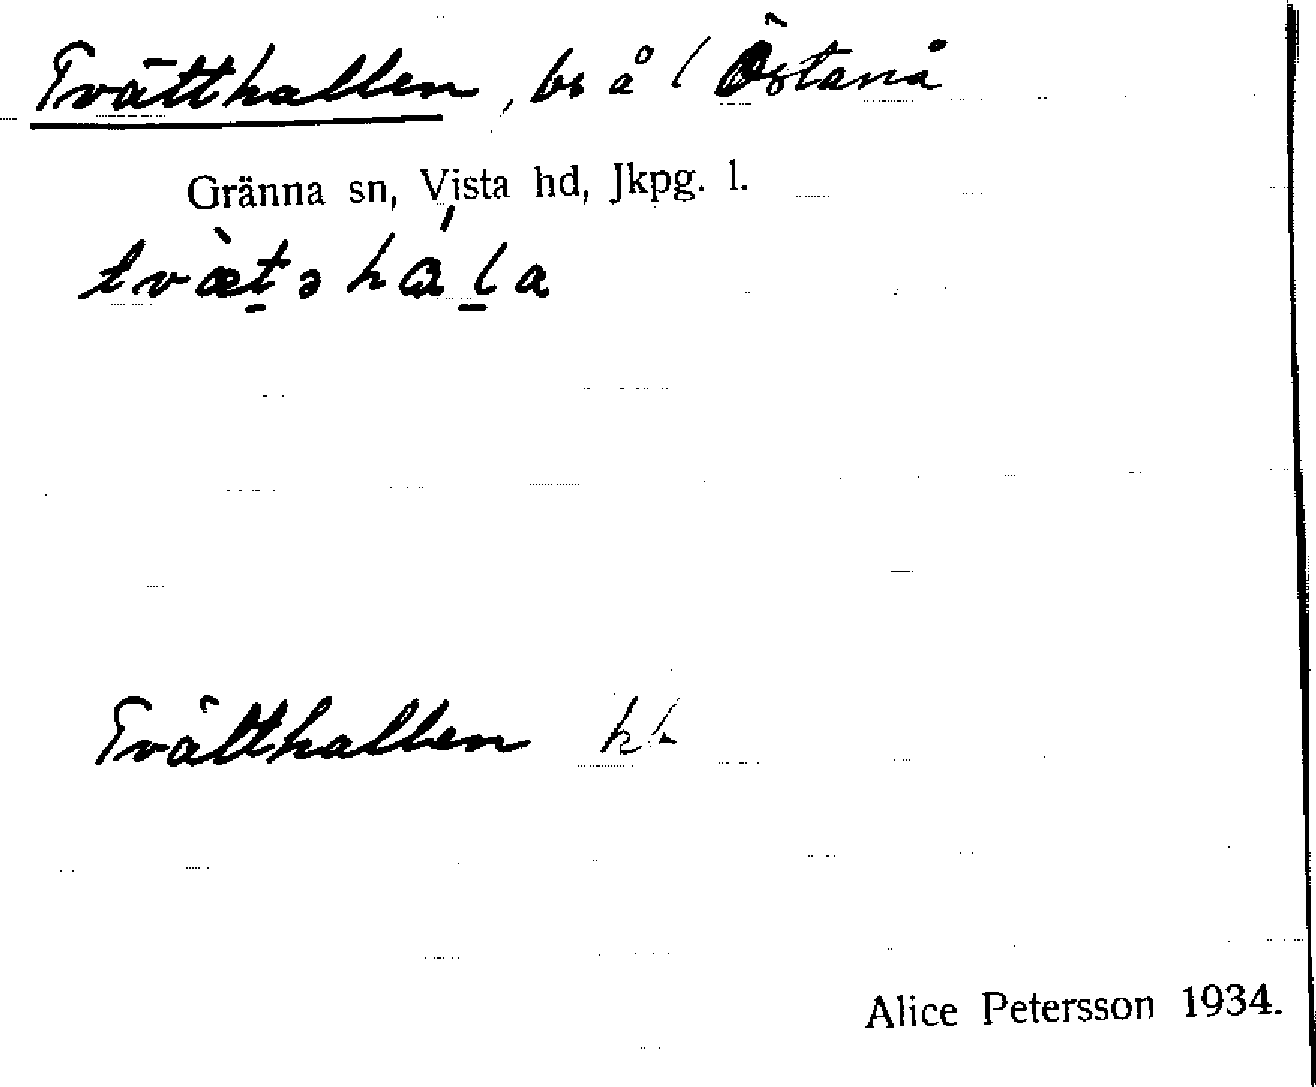 Tvätthallen, bs å l Östanå
Gränna sn, Vista hd, Jkpg. l.
tvæ̀t̠əhál̠a
Tvätthallen
Alice Petersson 1934.